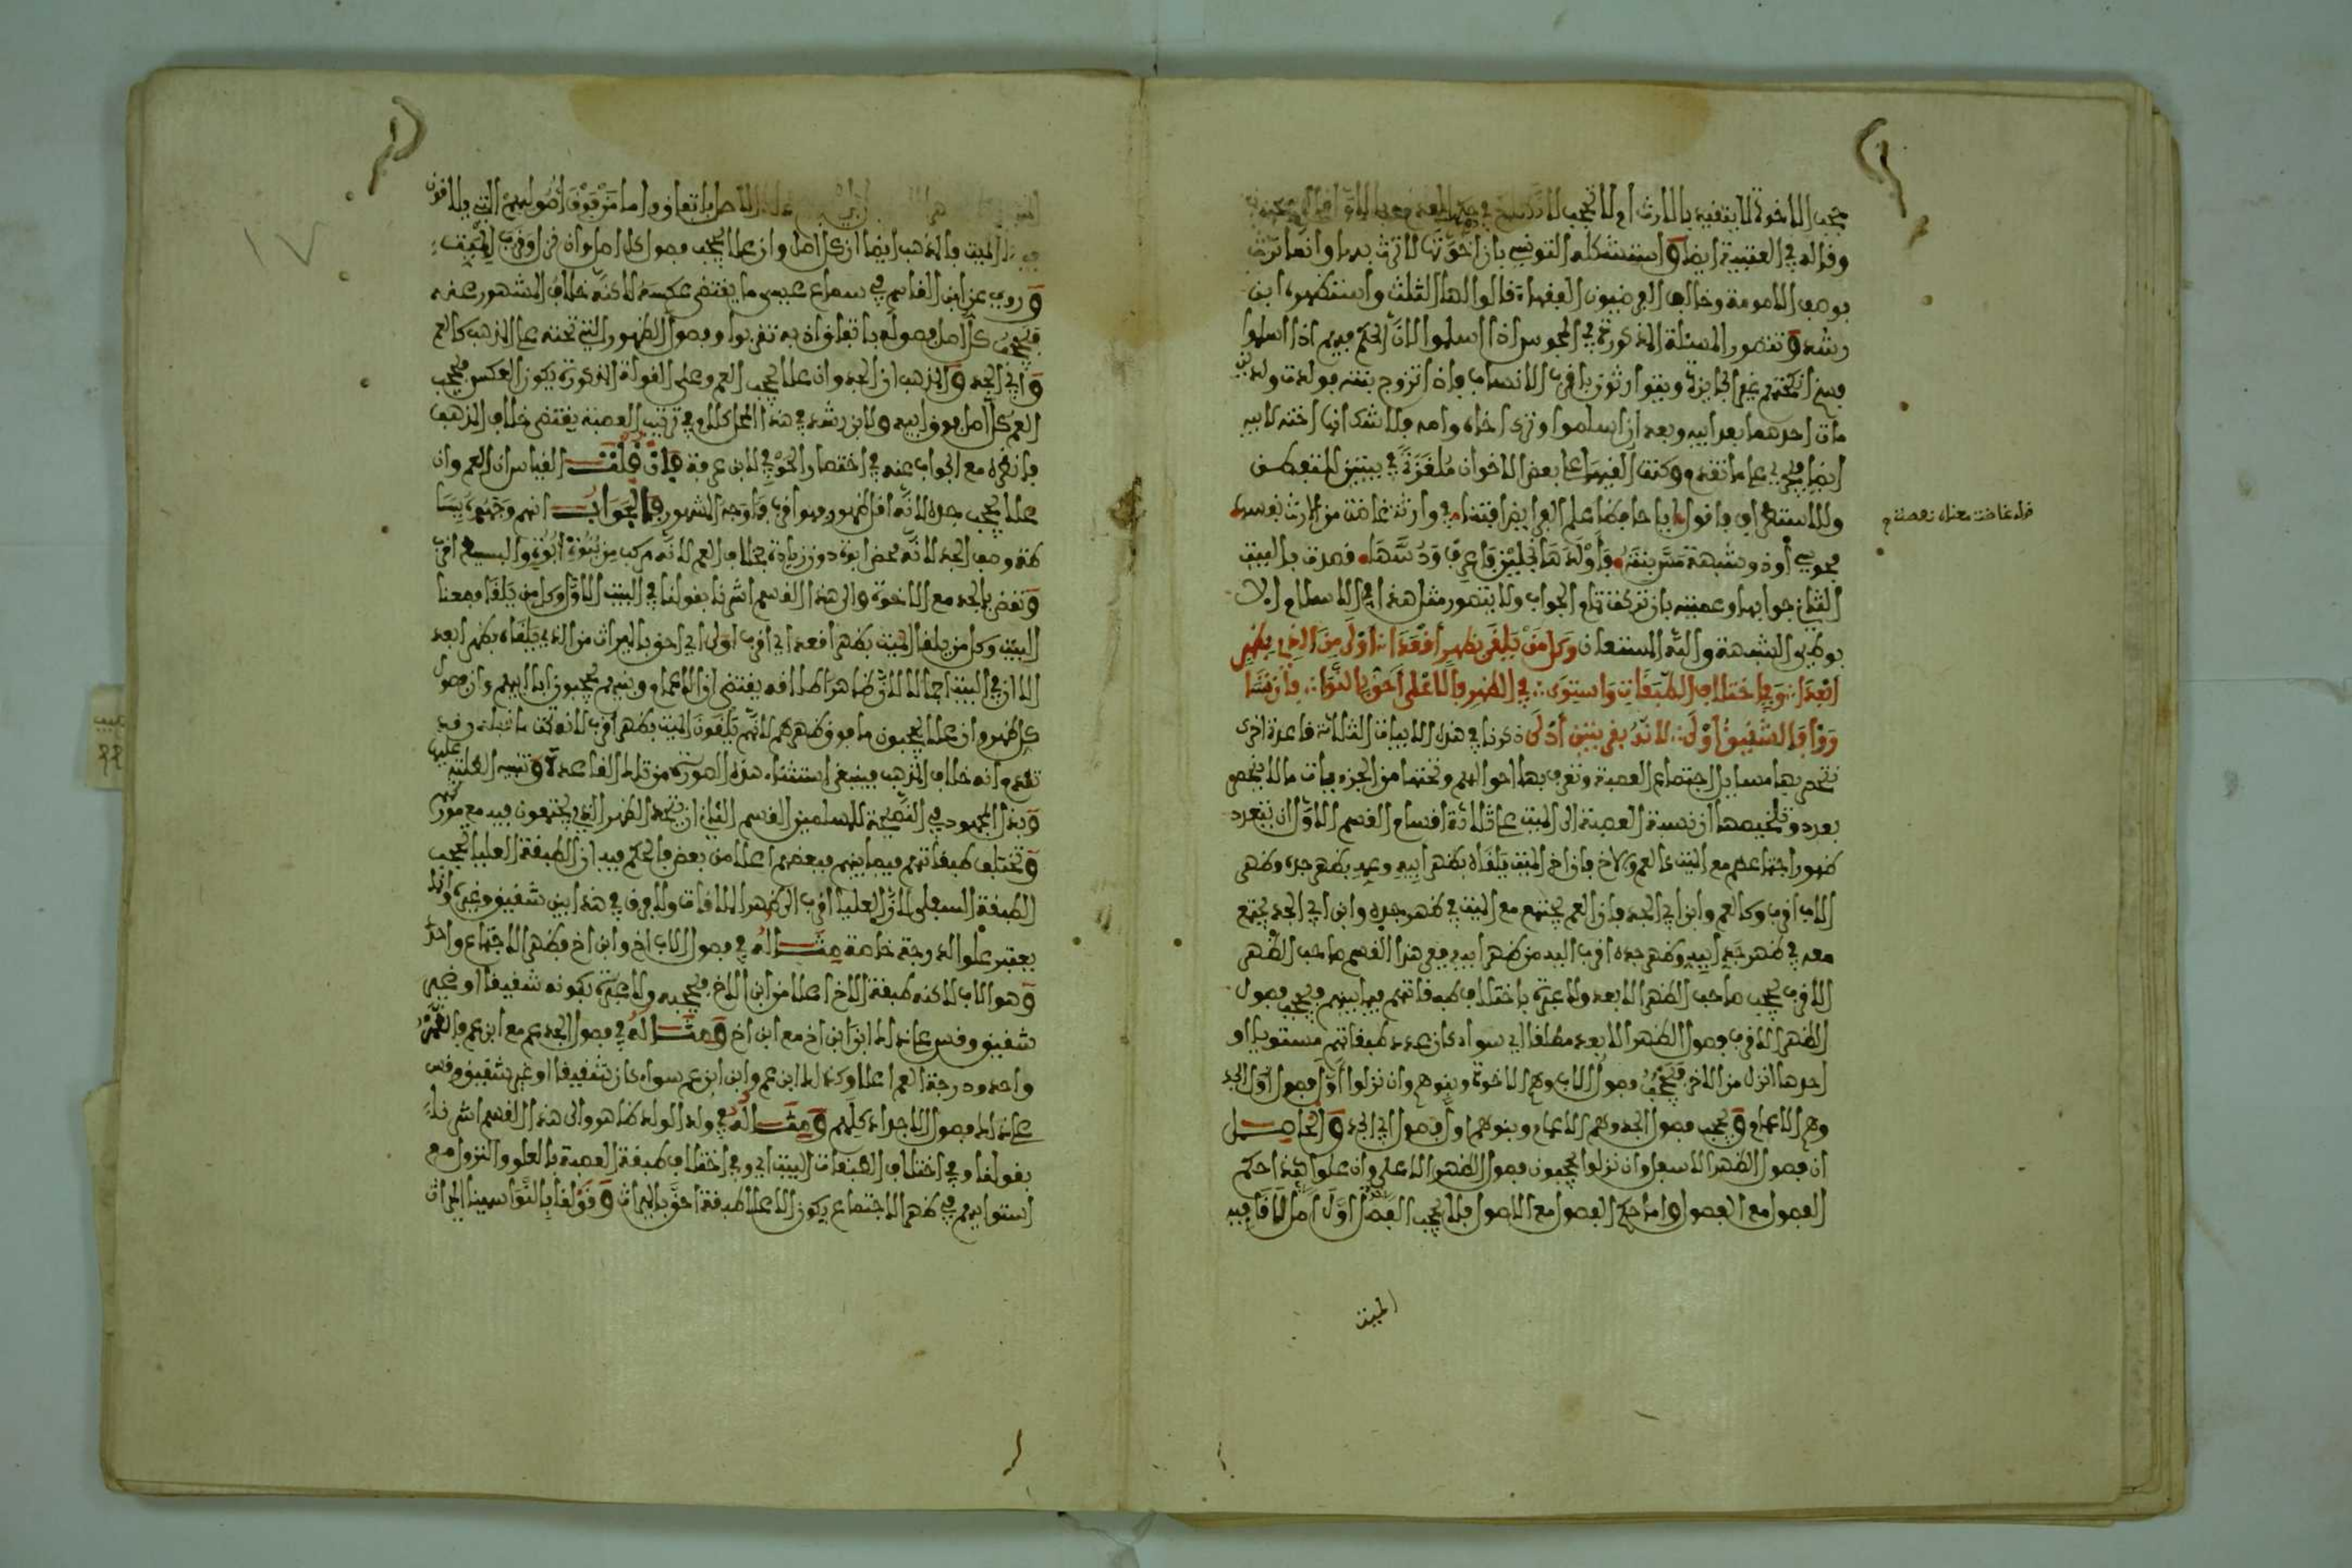 يحجب الاخوة لا بتقيد بالارث ام لا تحجب
وقاله في العتبية ايضا واستشكله التونسي بان اخوتها لا ترث بها وانما ترث
بوصف الامومة وخالف الفرضيون الفقهاء فقالوا لها الثلث واستظهره ابن
رشد وتتصور المسئلة المذكورة في المجوس اذا اسلموا لان الحكم فيهم اذا اسلموا
فسخ انكحتهم غير الجايزة ويتوارثون باقرب الانساب فاذا تزوج بنته فولدت ولدين
مات احدهما بعد ابيه وبعد ان اسلموا وترك اخاه وامه فلا شك انها اخته لابيه
ايضا فيجري على ما تقدم وكنت الغيتها على بعض الاخوان ملغزة في بيتين للتعطش
وللاستظراف فاقول ايا حافظا علم الفرايض افتنا في وارثة غاضت من الارث نفسها
قوله غاضت معناه نقصت
مجوسي او ذو شبهة مس بنته فاولدها نجلين فاعرف ودسها فصرت بالبيت
الثاني جوابها وعميته بان تركت تمام الجواب ولا يتصور مثل هذا في الاسلام الا
بوطئ الشبهة والله المستعان وكل من يلقى بظهر اقعدا اولى من الذي بظهر
ابعدا وفي اختلاف الطبقات واستوى في الظهر فالاعلى احق بالتوا فان تسا
ووا فالشقيق اولى لانه بقربتين ادلى ذكرنا في هذه الابيات الثلاثة قاعدة اخرى
تنحصر بها مسايل اجتماع العصبة وتعرف بها احوالهم وتحتها من الجزءيات ما لا ينحصر
بعدد وتلخيصها ان نسبة العصبة الى الميت على ثلاثة اقسام القسم الاول ان تتعدد
ظهور اجتماعهم مع الميت كالعم والاخ فان اخ الميت يلقاه بظهر ابيه وعمه بظهر جده وظهر
الاب اقرب وكالعم وابن ابي الجد فان العم يجتمع مع الميت في ظهر جده وابن ابي الجد يجتمع
معه في ظهر جد ابيه وظهر جده اقرب اليه من ظهر ابيه ففي هذا القسم صاحب الظهر
الاقرب يحجب صاحب الظهر الابعد ولا عبرة باختلاف طبقاتهم فيما بينهم فيحجب فصول
الظهر الاقرب فصول الظهر الابعد مطلقا اي سواء كان عدد طبقاتهم مستويا او
احدها انزل من الاخر فتحجب فصول الاب وهم الاخوة وبنوهم وان نزلوا اول فصول الجد
وهم الاعمام ويحجب فصول الجد وهم الاعمام وبنوهم اول فصول ابي الجد والحاصل
ان فصول الظهر الاسفل وان نزلوا يحجبون فصول الظهر الاعلى وان علوا هذا حكم
الفصول مع الفصول واما حكم الفصول مع الاصول فلا يحجب الفصل اول اصل لاقا فيه
الميت
١٧
الميت فالمذهب ايضا ان كل اصل وان علا يحجب فصول كل اصل وان قرب
وروي عن ابن القاسم في سماع عيسى ما يقتضي عكسه لاكنه خلاف المشهور عنه
فيحجب كل اصل فصوله باتفاق اذ به تقربوا وفصول الظهور التي تحته على المذهب كالعم
وابي الجد والمذهب ان الجد وان علا يحجب العم وعلى القولة المذكورة يكون العكس فيحجب
العم كل اصل فوق ابيه ولابن رشد في هذا المحل كلام في ترتيب العصبة يقتضي خلاف المذهب
فانظره مع الجواب عنه في اختصار الحوفي لابن عرفة فان قلت القياس ان العم وان
علا يحجب جده لانه اقل ظهور فهو اقرب فما وجه المشهور فالجواب انهم وجهوه بتسا
كة وصف الجد لانه محض ابوة دون زيادة بخلاف العم لانه مركب من بنوة ابوة والبسيط اقرب
ونقض بالجد مع الاخوة والى هذا القسم اشرنا بقولنا في البيت الاول وكل من يلقا فمعنا
البيت وكل من يلقا الميت بظهر اقعد اي اقرب اولى اي احق بالميراث من الذي يلقاه بظهر ابعد
الا ان في البيت اجمالا لان ظاهر اطلاقه يقتضي ان الاعمام وبنيهم يحجبون ابا ابيهم وان فصول
كل ظهر وان علا يحجبون ما فوق ظهرهم لانهم يلقون الميت بظهر اقرب لانه تحت ما قبله وقد
تقدم انه خلاف المذهب فينبغي استثناء هذه الصورة من تلك القاعدة وتنبيه الطلبة عليها
وبذل المجهود في النصيحة للمسلمين القسم الثاني ان يتحد الظهر الذي يجتمعون فيه مع موروثهم
وتختلف طبقاتهم فيما بينهم فبعضهم اعلا من بعض فالحكم فيه ان الطبقة العليا تحجب
الطبقة السفلى لان العليا اقرب الى ظهر الملاقات ولا فرق في هذا بين شقيق وغيره وانما
يعتبر علو الدرجة خاصة مثاله في فصول الاب اخ وابن اخ فظهر الاجتماع واحد
وهو الاب لاكنه طبقة الاخ اعلا من ابن الاخ فيحجبه ولا عبرة بكونه شقيقا او غير
شقيق وقس على ذلك ابن ابن اخ مع ابن اخ ومثاله في فصول الجد عم مع ابن عم فالظهر
واحد ودرجة العم اعلا وكذلك ابن عم وابن ابن عم سواء كان شقيقا او غير شقيق وقس
على ذلك فصول الاجداد كلهم ومثاله في ولد الولد ظاهر والى هذا القسم اشرنا
بقولنا وفي اختلاف الطبقات البيت اي وفي اختلاف طبقة العصبة بالعلو والنزول مع
استوايهم في ظهر الاجتماع يكون الاعلا طبقة احق بالميراث وقولنا بالتوا سمينا الميراث